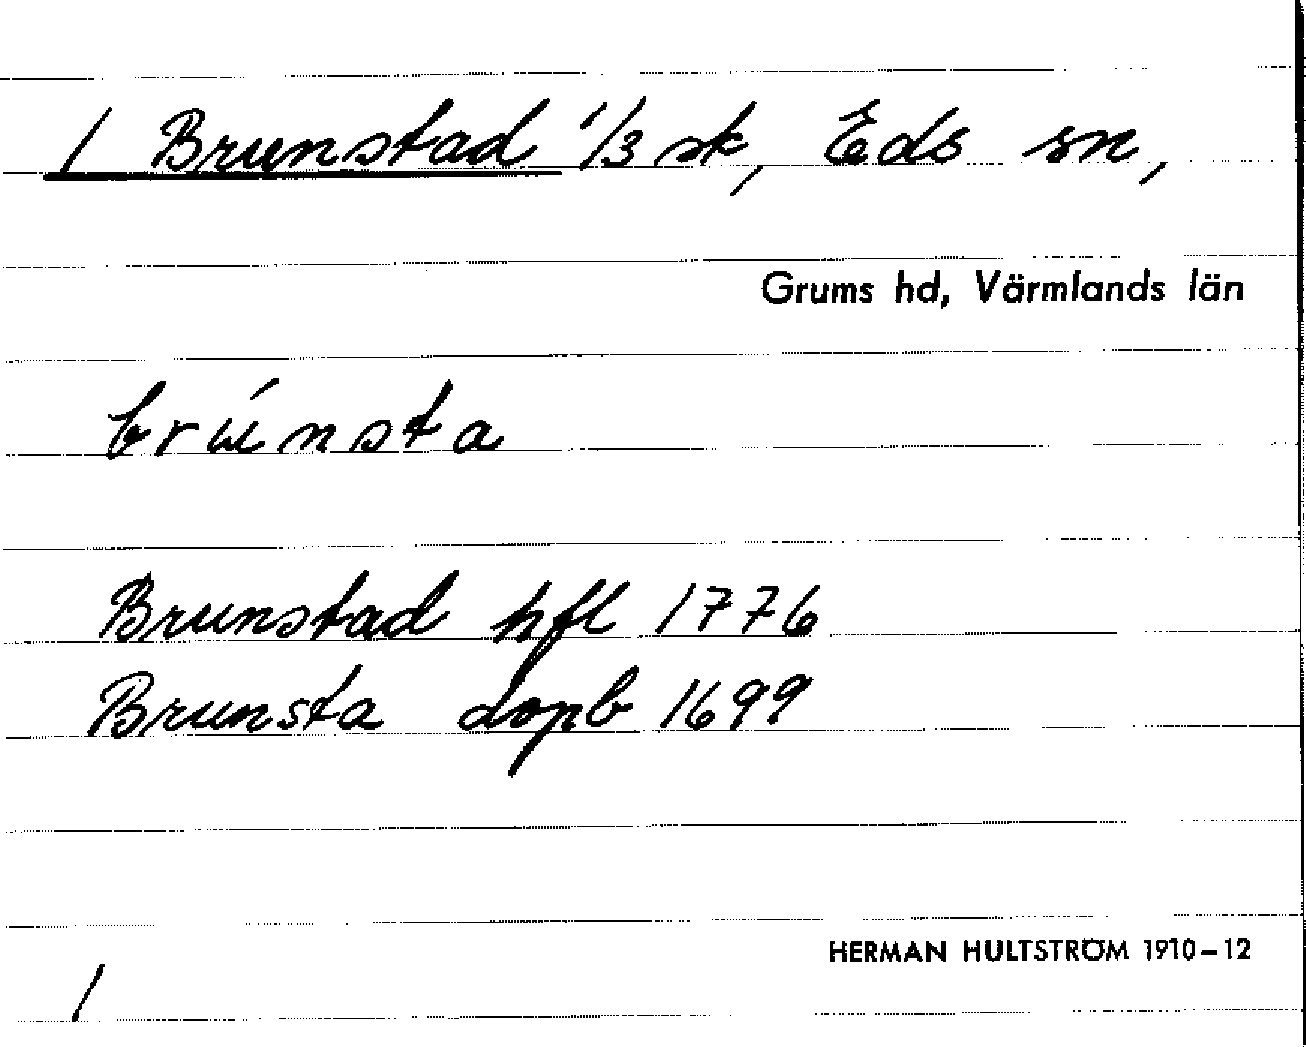 1 Brunstad 1/3 sk, Eds sn,
Grums hd, Värmlands län
brúnsta
Brunstad hfl 1776
Brunsta dopb 1699
HERMAN HULTSTRÖM 1910-12
1